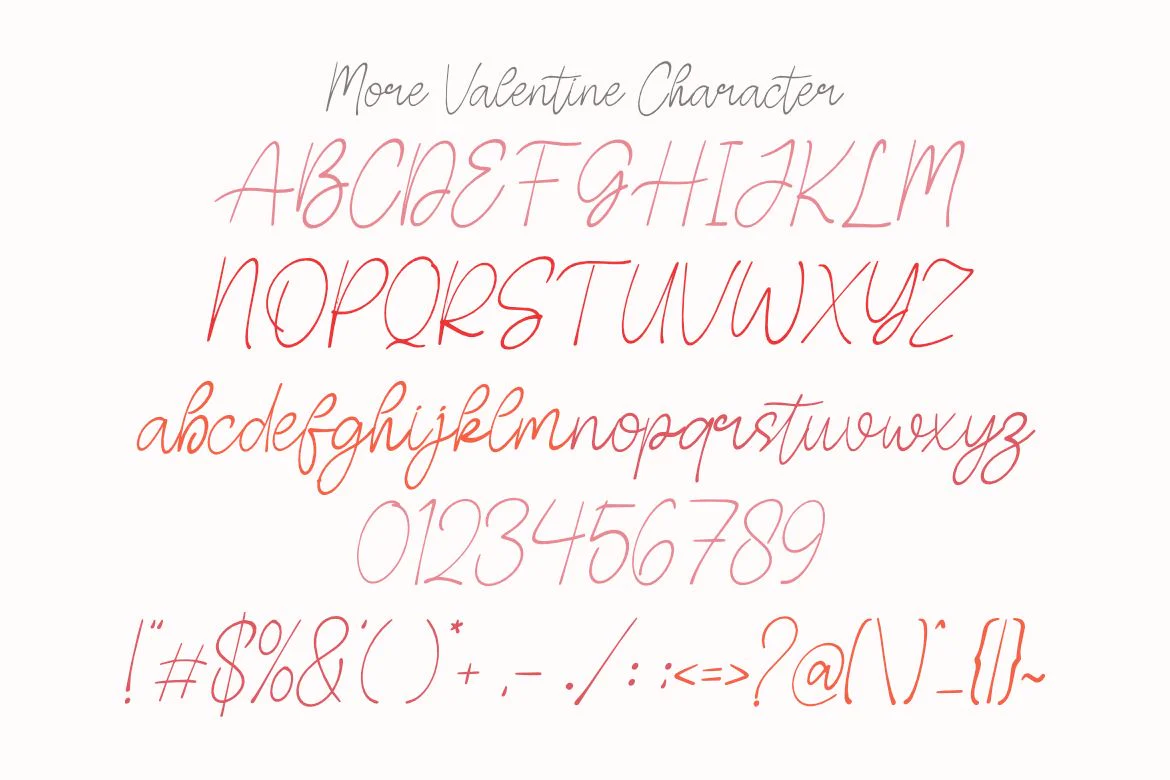 More Valentine Character
ABCDEFGHIJKLM
NOPQRSTUVWXYZ
abcdefghijklmnopqrstuvwxyz
0123456789
!"#$%&'()*+,-./:;<=>?@[\]^_{|}~